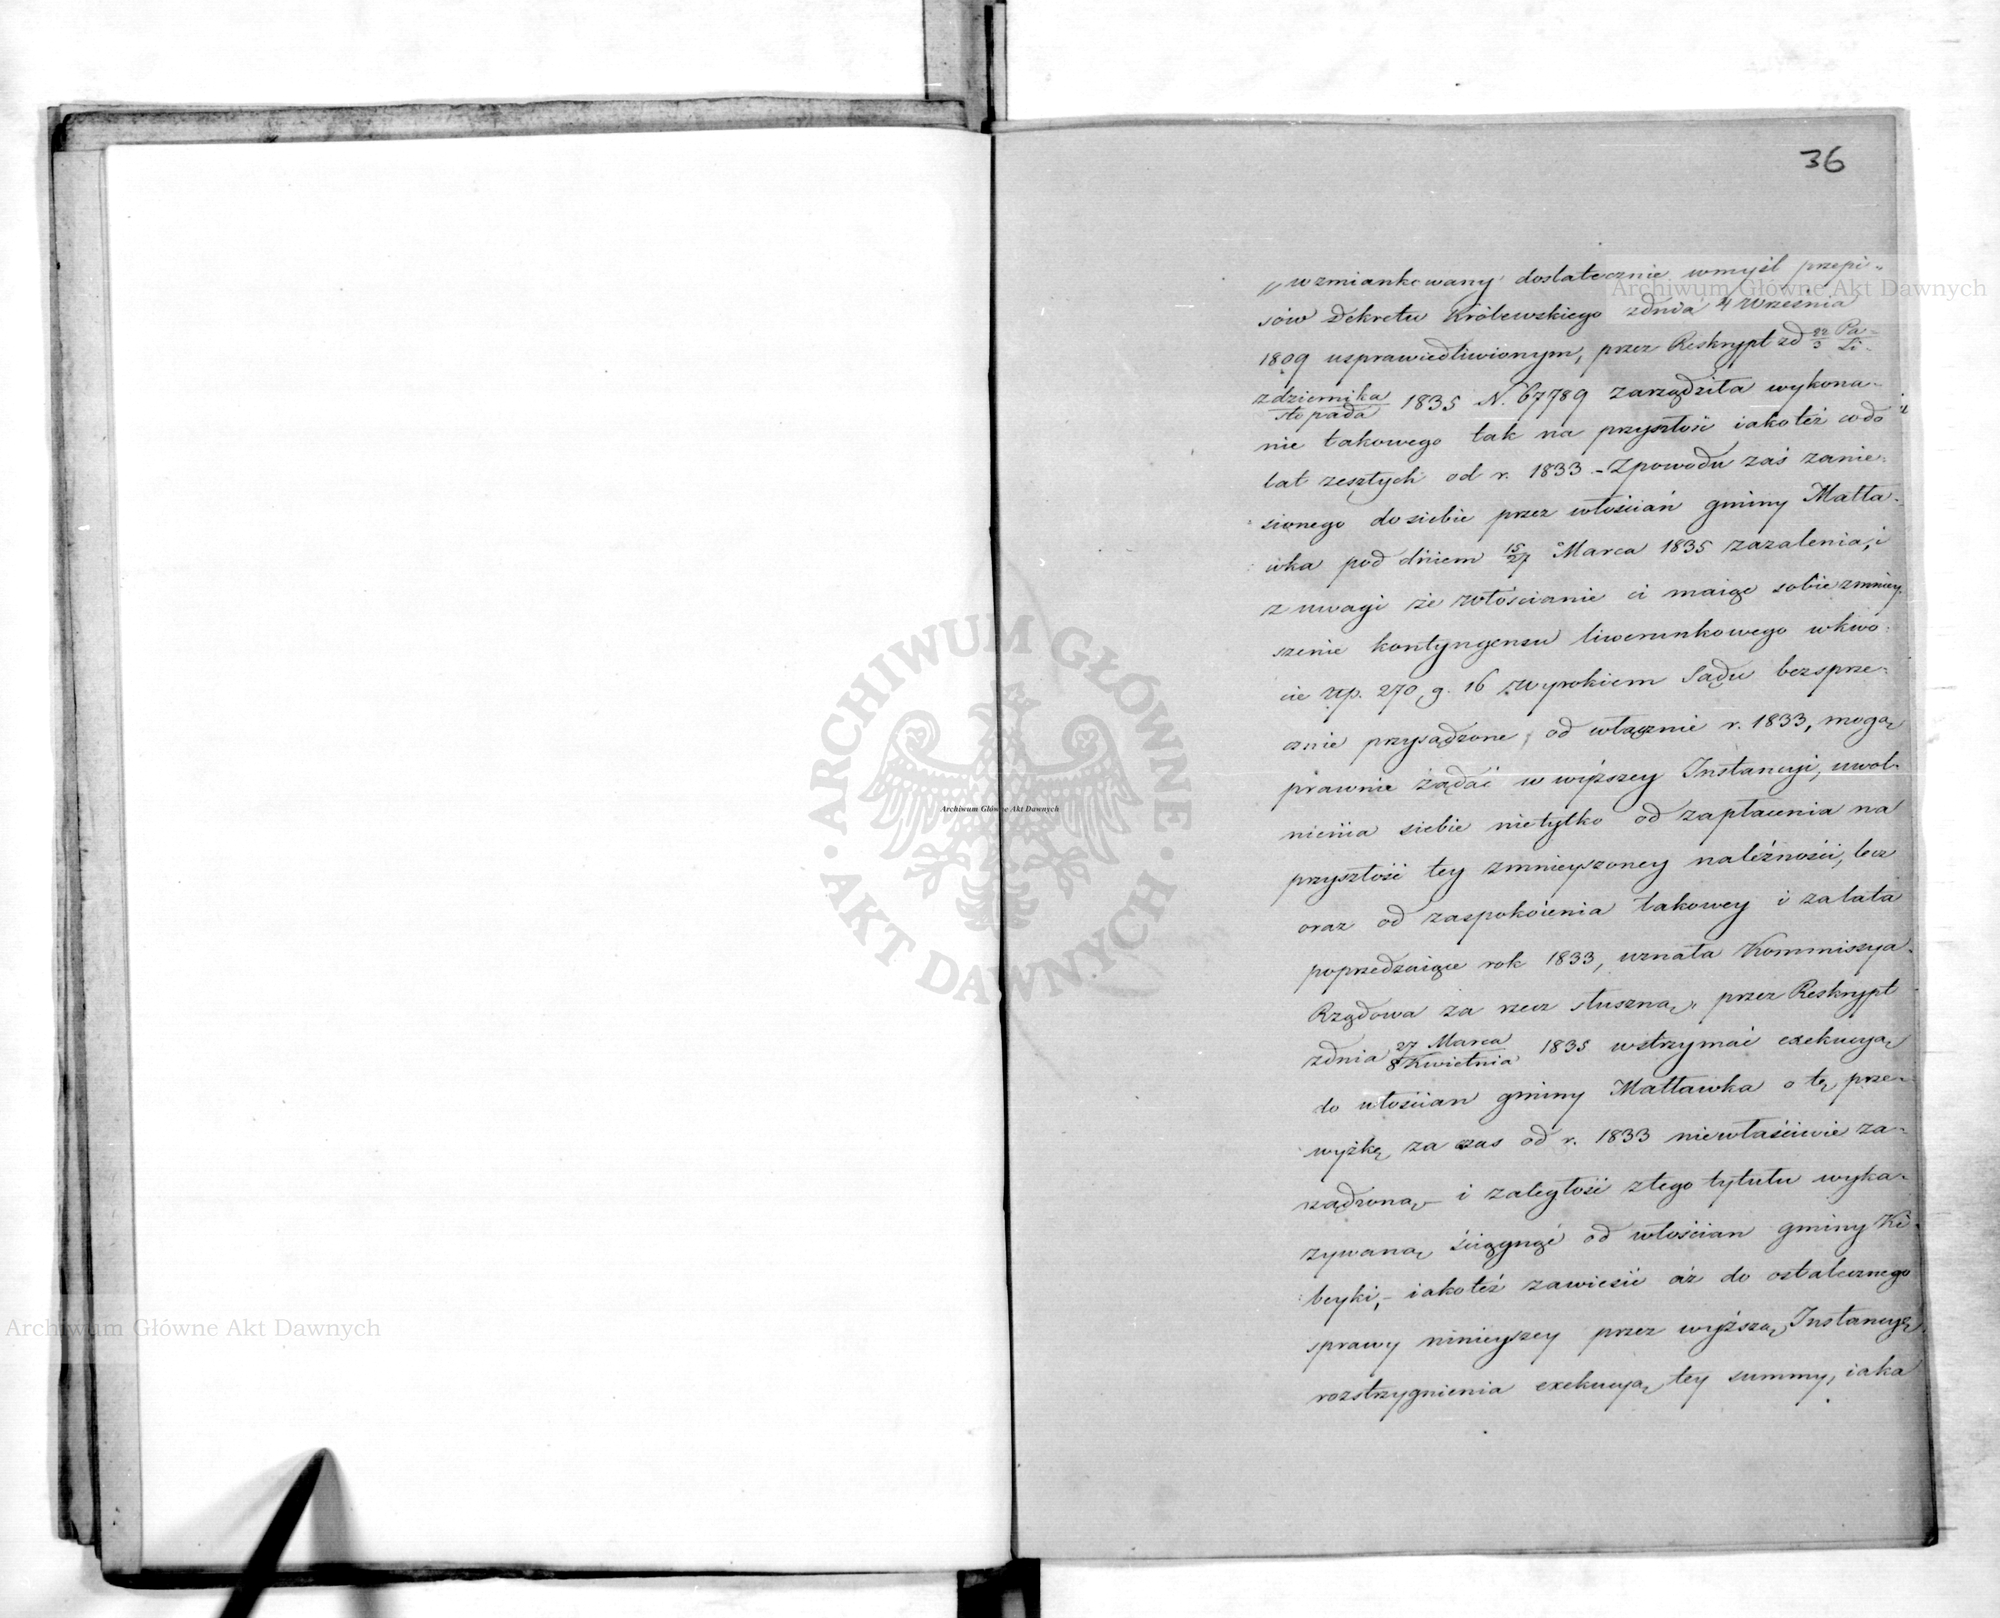 36
„wzmiankowany dostatecznie wmyśl przepi„
sów Dekretu Królewskiego zdnia 4 Września
1809 usprawiedliwionym, przez Reskrypt zd 22/3 Pa-/Li-
zdziernika/stopada 1835 N. 67789 zarządziła wykona-
nie takowego tak na przyszłość iakoteż codo
lat zeszłych od r. 1833 - Zpowodu zaś zanie-
sionego dosiebie przez włościan gminy Matła-
wka pod dniem 15/27 Marca 1835 zażalenia, i
z uwagi że Włościanie ci maiąc sobie zmniey-
szenie kontyngensu liwerunkowego wkwo-
cie złp. 270, g. 16 Wyrokiem Sądu bezsprze-
cznie przysądzone, od włącznie r. 1833, mogą
prawnie żądać w wyższey Instancyi, uwol-
nienia siebie nietylko od zapłacenia na
przyszłość tey zmnieyszoney należności, lecz
oraz od zaspokoienia takowey i zalata
poprzedzaiące rok 1833, uznała Kommissya
Rządowa za rzecz słuszną, przez Reskrypt
zdnia 27 Marca/8 Kwietnia 1835 wstrzymać exekucyą
do włościan gminy Matławka o tę prze-
wyżkę za czas od r. 1833 niewłaściwie za-
rządzoną - i zaległość ztego tytułu wyka-
zywaną ściągnąć od włościan gminy Ki-
beyki, - iakoteż zawiesić aż do ostatecznego
sprawy ninieyszey przez wyższą Instancyę
rozstrzygnienia exekucyą tey summy, iaka
Archiwum Główne Akt Dawnych
Archiwum Główne Akt Dawnych
Archiwum Główne Akt Dawnych
ARCHIWUM GŁÓWNE · AKT DAWNYCH ·